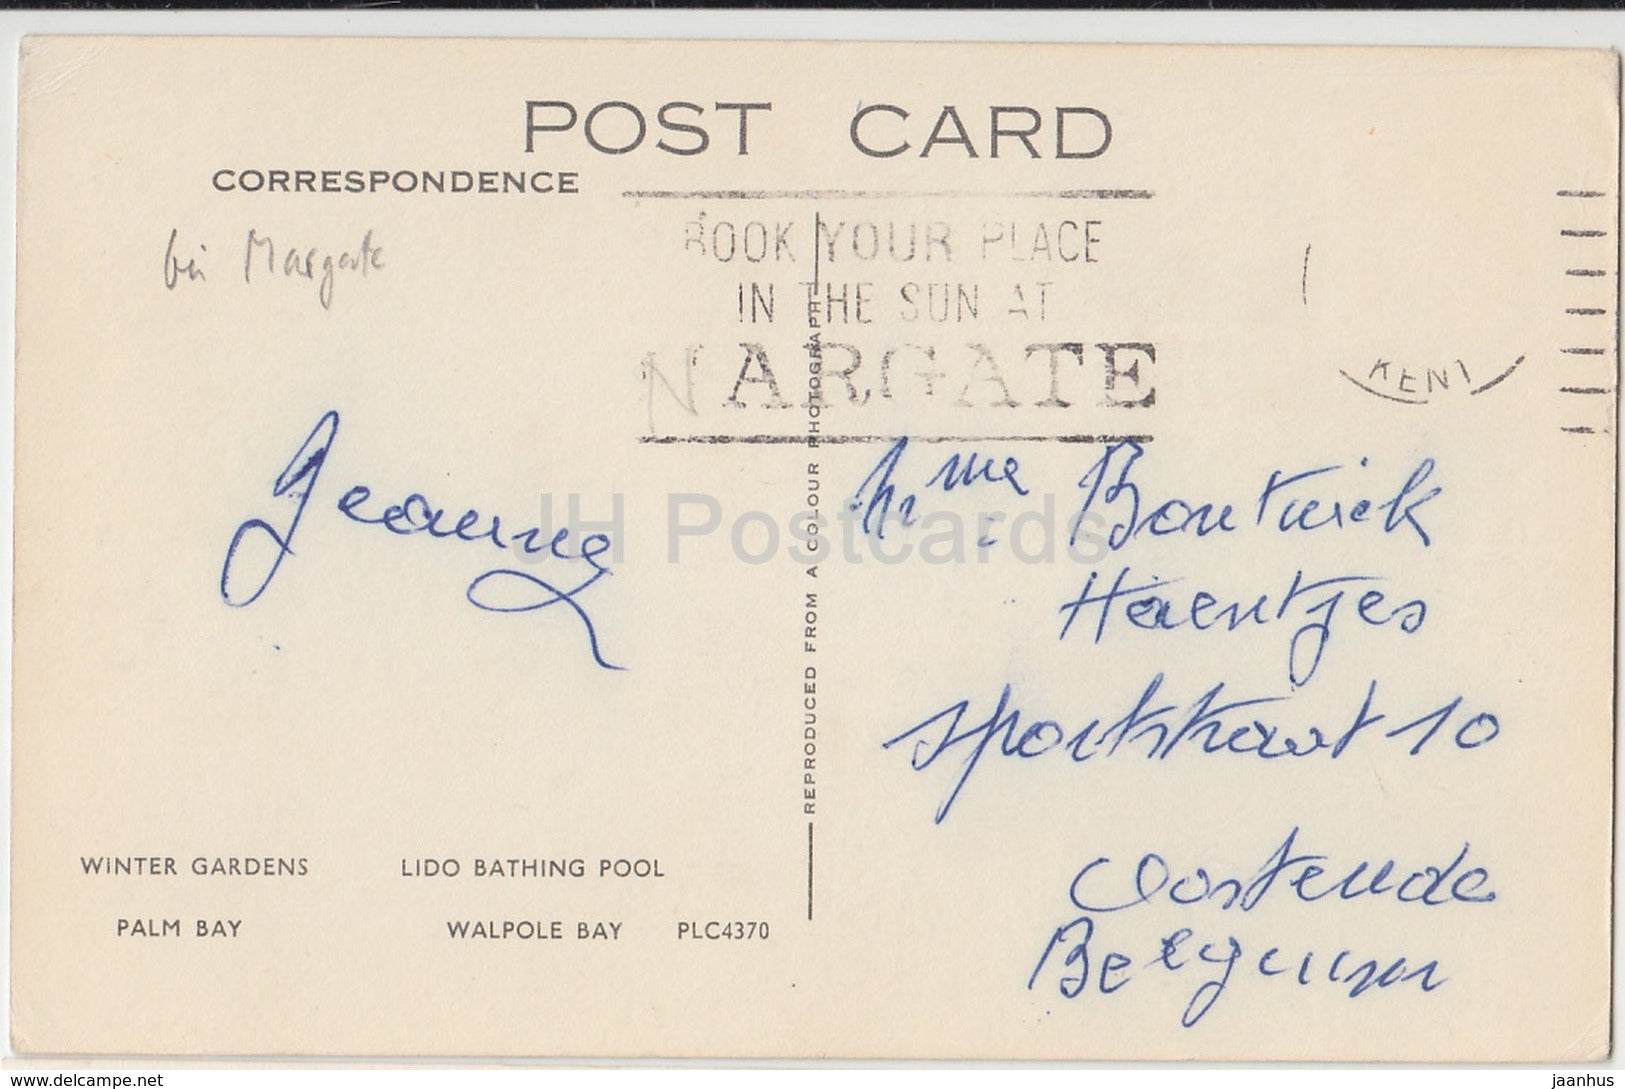 POST CARD
CORRESPONDENCE
Margate
BOOK YOUR PLACE
IN THE SUN AT
MARGATE
KENT
Jeanne
Mme. Bontinck
Haentjes
Sportstraat 10
Oostende
Belgium
REPRODUCED FROM A COLOUR PHOTOGRAPH
JH Postcards
WINTER GARDENS LIDO BATHING POOL
PALM BAY WALPOLE BAY PLC4370
www.delcampe.net
jaanhus